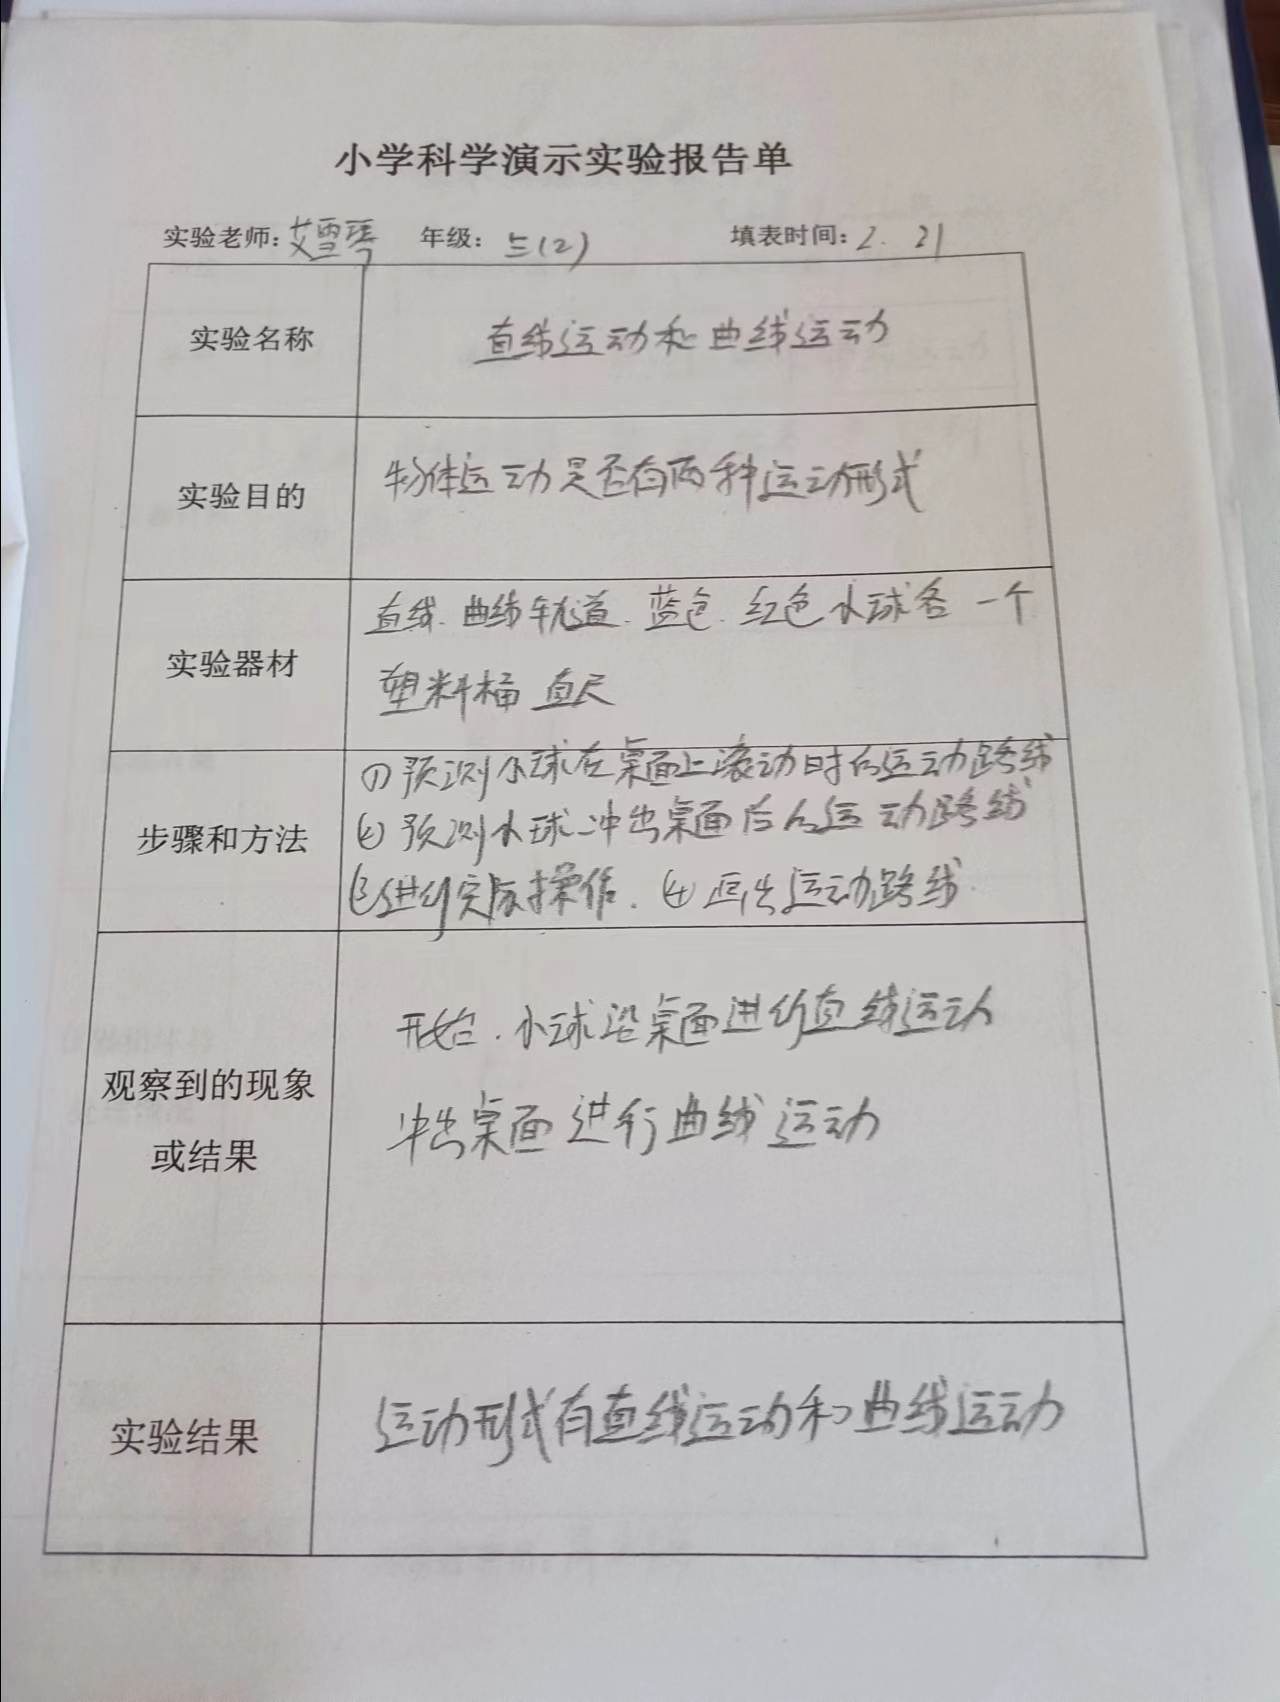 小学科学演示实验报告单
实验老师：艾雪琴 年级：三(2) 填表时间：2.21
实验名称
直线运动和曲线运动
实验目的
物体运动是否有两种运动形式
实验器材
直线.曲线轨道.蓝色.红色小球各一个
塑料桶 直尺
步骤和方法
(1)预测小球在桌面上滚动时的运动路线
(2)预测小球冲出桌面后的运动路线
(3)进行实际操作.(4)画出运动路线.
观察到的现象
或结果
开始.小球沿桌面进行直线运动
冲出桌面进行曲线运动
实验结果
运动形式有直线运动和曲线运动